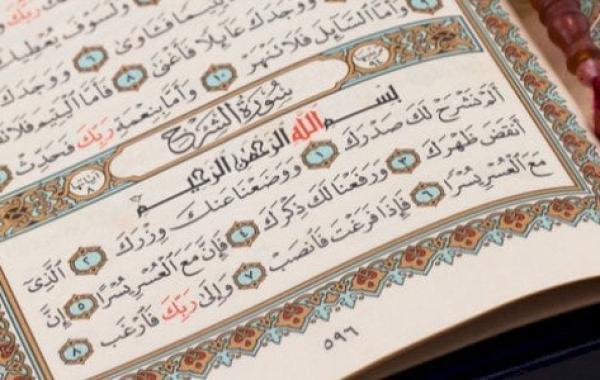 وَلَسَوْفَ يُعْطِيكَ
يَتِيمًا فَـَٔاوَىٰ ٦ وَوَجَدَكَ
وَوَجَدَكَ عَآئِلًا فَأَغْنَىٰ ٨ فَأَمَّا ٱلْيَتِيمَ فَلَا
وَأَمَّا ٱلسَّآئِلَ فَلَا تَنْهَرْ ١٠ وَأَمَّا بِنِعْمَةِ رَبِّكَ فَحَدِّثْ
سُورَةُ الشَّرْحِ
آياتها ٨
بِسْمِ ٱللَّهِ ٱلرَّحْمَٰنِ ٱلرَّحِيمِ
أَلَمْ نَشْرَحْ لَكَ صَدْرَكَ ١ وَوَضَعْنَا عَنكَ وِزْرَكَ ٢ ٱلَّذِىٓ
أَنقَضَ ظَهْرَكَ ٣ وَرَفَعْنَا لَكَ ذِكْرَكَ ٤ فَإِنَّ مَعَ ٱلْعُسْرِ يُسْرًا ٥ إِنَّ
مَعَ ٱلْعُسْرِ يُسْرًا ٦ فَإِذَا فَرَغْتَ فَٱنصَبْ ٧ وَإِلَىٰ رَبِّكَ فَٱرْغَب ٨
٥٩٦